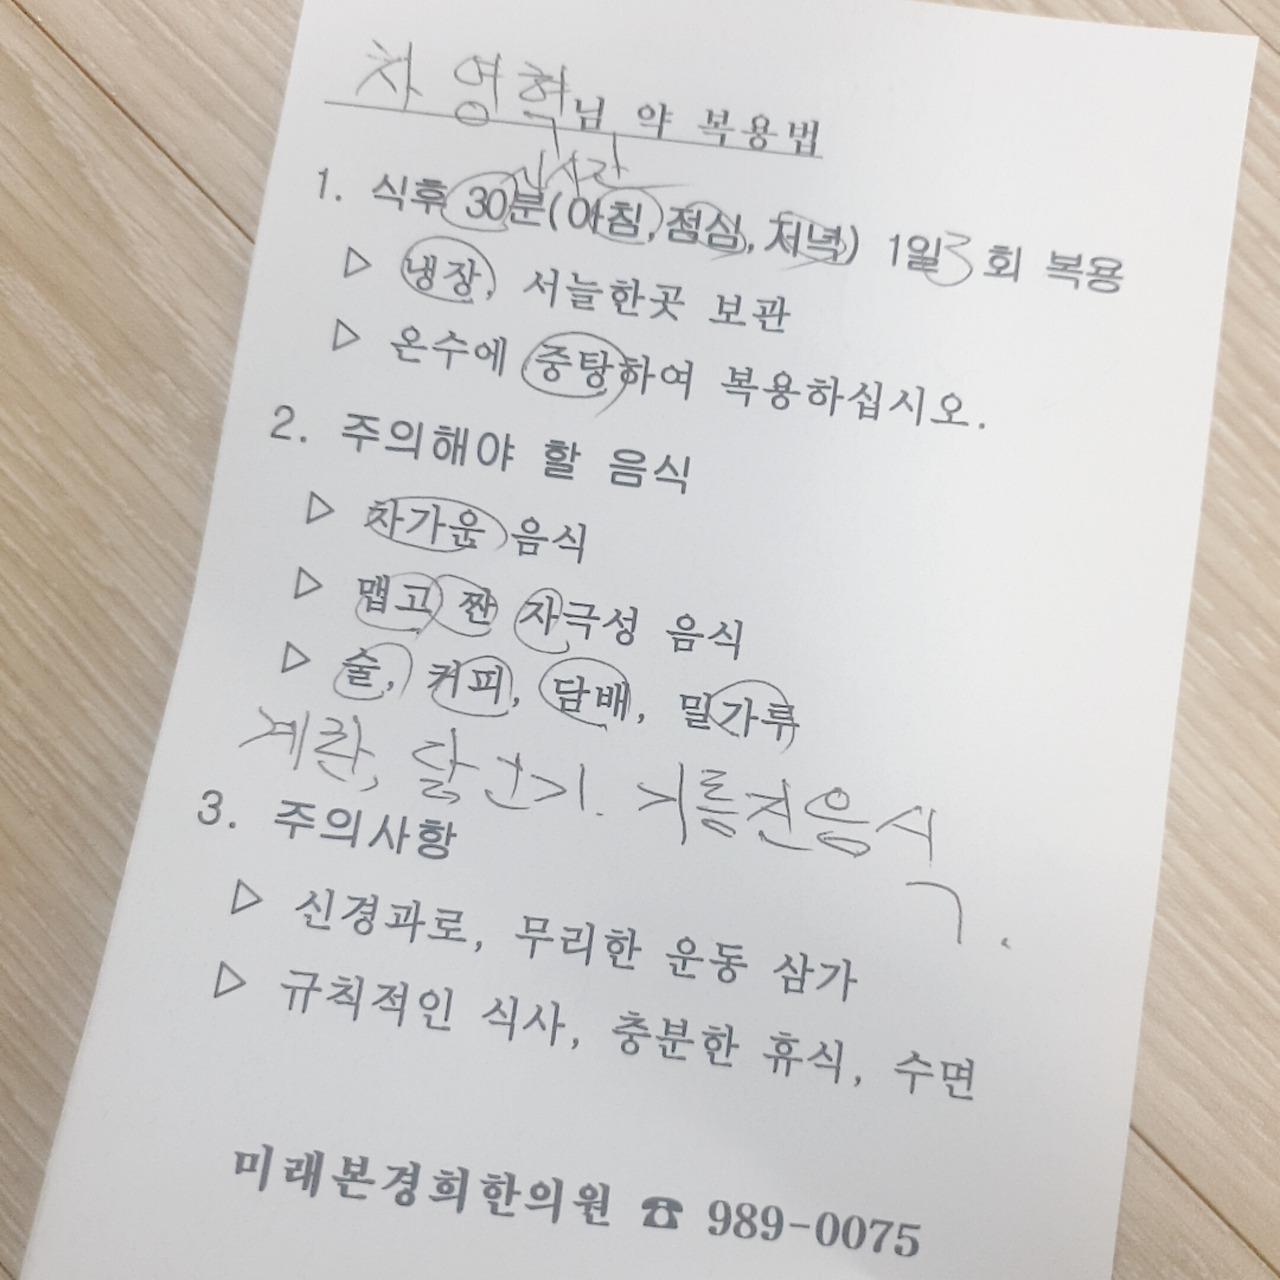 차영학님 약 복용법
시간
1. 식후 30분(아침, 점심, 저녁) 1일 3 회 복용
▷ 냉장, 서늘한곳 보관
▷ 온수에 중탕하여 복용하십시오.
2. 주의해야 할 음식
▷ 차가운 음식
▷ 맵고 짠 자극성 음식
▷ 술, 커피, 담배, 밀가루
계란, 닭고기. 기름진음식.
3. 주의사항
▷ 신경과로, 무리한 운동 삼가
▷ 규칙적인 식사, 충분한 휴식, 수면
미래본경희한의원 ☎ 989-0075